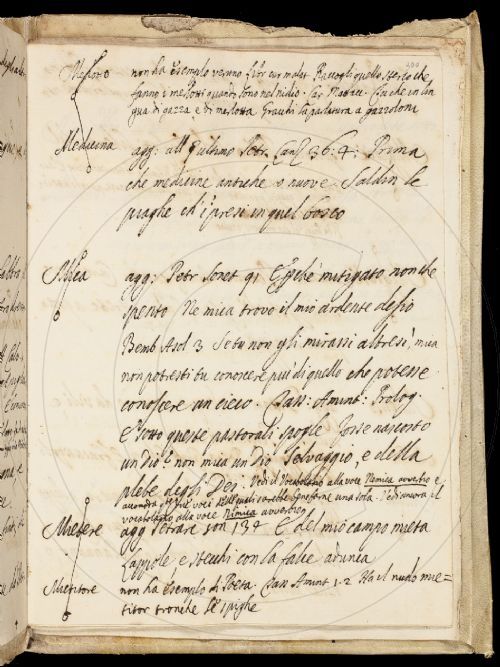 non ha esempio veruno
Raccogli quello sterco che
fanno i merlotti quanti sono nel nidio
gua di gazza e di merlotta
Medicina agg: all' ultimo Petr. Canz 36. 4: Prima
che medicine antiche o nuove Saldin le
piaghe ch' i presi in quel bosco
Mica agg: Petr Sonet 91 E perché mitigato non che
spento Ne mica trovo il mio ardente desio
Bemb Asol 3 Se tu non gli mirassi altresi, mica
non potresti tu conoscere più di quello che potesse
conoscere un cieco. Tass. Amint. Prolog.
E sotto queste pastorali spoglie forse nascosto
un Dio? non mica un Dio Selvaggio, o della
plebe degli Dei. Vedi il Vocabolario alla voce Nimica avverbio e
una sola. Vedi ancora il
vocabolario alla voce Nimica avverbio
Mietere agg Petrarc son 134 E del mio campo mieta
Lappole e stecchi con la falce adunca
Mietitore non ha esempio di Poeta. Tass Amint 1. 2 Ha il nudo mie=
titor tronche le spighe